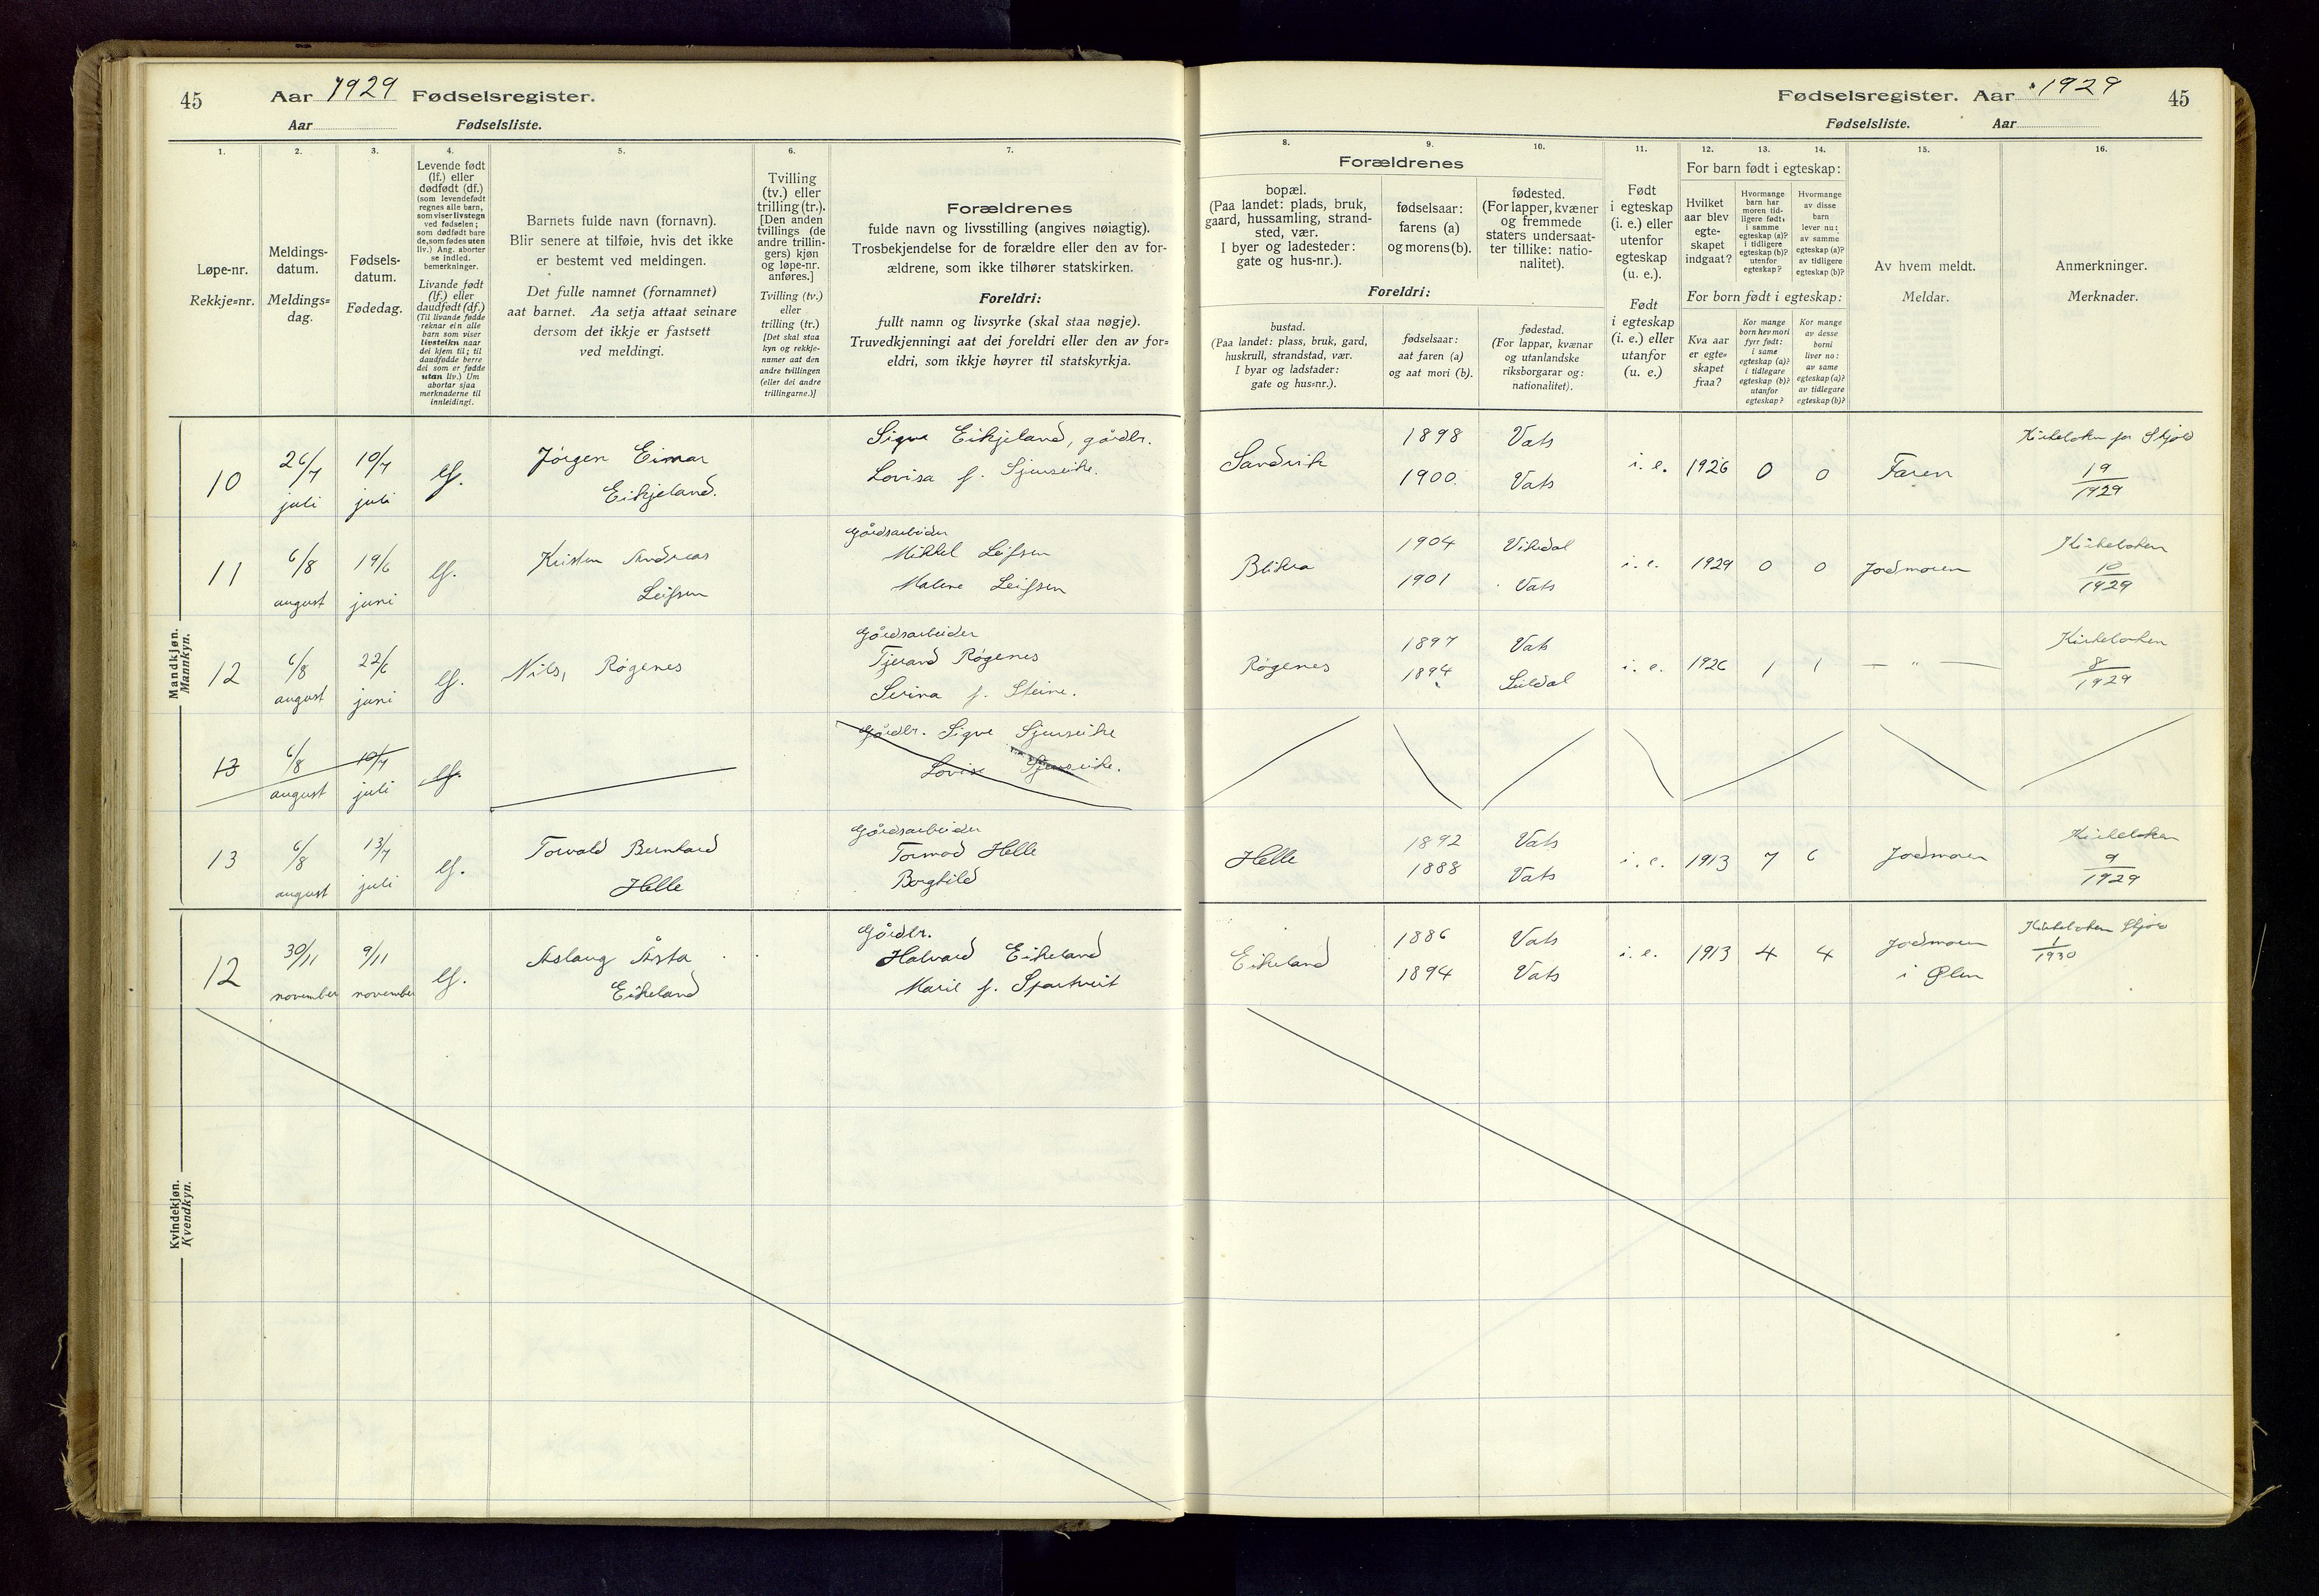 45 Aar 1929 Fødselsregister.
Aar Fødselsliste.
Fødselsregister. Aar 1929 45
Fødselsliste. Aar
1.
Løpe-nr.
Rekkje=nr.
2.
Meldings-
datum.
Meldings=
dag.
3.
Fødsels-
datum.
Fødedag.
4.
Levende født
(lf.) eller
dødfødt (df.)
(som levendefødt
regnes alle barn,
som viser livstegn
ved fødselen;
som dødfødt bare
de, som fødes uten
liv.) Ang. aborter
se indled.
bemerkninger.
Livande født
(lf.) eller
daudfødt (df.)
(Til livande fødde
reknar ein alle
barn som viser
livsteikn naar
dei kjem til; til
daudfødde berre
dei som er fødde
utan liv.) Um
abortar sjaa
merknaderne til
innleidingi.
5.
Barnets fulde navn (fornavn).
Blir senere at tilføie, hvis det ikke
er bestemt ved meldingen.
Det fulle namnet (fornamnet)
aat barnet. Aa setja attaat seinare
dersom det ikkje er fastsett
ved meldingi.
6.
Tvilling
(tv.) eller
trilling (tr.).
[Den anden
tvillings (de
andre trillin-
gers) kjøn
og løpe-nr.
anføres.]
Tvilling (tv.)
eller
trilling (tr.)
[Det skal staa
kyn og rekkje-
numer aat den
andre tvillingen
(eller dei andre
trillingarne.)]
7.
Forældrenes
fulde navn og livsstilling (angives nøiagtig).
Trosbekjendelse for de forældre eller den av for-
ældrene, som ikke tilhører statskirken.
Foreldri:
fullt namn og livsyrke (skal staa nøgje).
Truvedkjenningi aat dei foreldri eller den av for=
eldri, som ikkje høyrer til statskyrkja.
Forældrenes
8.
bopæl.
(Paa landet: plads, bruk,
gaard, hussamling, strand-
sted, vær.
I byer og ladesteder:
gate og hus-nr.).
9.
fødselsaar:
farens (a)
og morens (b).
10.
fødested.
(For lapper, kvæner
og fremmede
staters undersaat-
ter tillike: natio-
nalitet).
Foreldri:
bustad.
(Paa landet: plass, bruk, gard,
huskrull, strandstad, vær.
I byar og ladstader:
gate og hus=nr.).
fødselsaar:
aat faren (a)
og aat mori (b).
fødestad.
(For lappar, kvænar
og utanlandske
riksborgarar og:
nationalitet).
11.
Født
i egteskap
(i. e.) eller
utenfor
egteskap
(u. e.).
Født
i egteskap
(i. e.) eller
utanfor
(u. e.)
For barn født i egteskap:
12.
Hvilket
aar blev
egte-
skapet
indgaat?
13.
Hvormange
barn har
moren tid-
ligere født,
i samme
egteskap (a)?
i tidligere
egteskap (b)?
utenfor
egteskap?
14.
Hvormange
av disse
barn
lever nu:
av samme
egteskap (a)?
av tidligere
egteskap (b)?
For born født i egteskap:
Kva aar
er egte=
skapet
fraa?
Kor mange
born hev mori
fyrr født:
i same
egteskap (a)?
i tidlegare
egteskap (b)?
utanfor
egteskap?
Kor mange
av desse
borni
liver no:
av same
egteskap (a)?
av tidlegare
egteskap (b)?
15.
Av hvem meldt.
Meldar.
16.
Anmerkninger.
Merknader.
Mandkjøn.
Mannkyn.
10 26/7 juli 10/7 juli lf. Jörgen Eimar Eikjeland. Sigve Eikjeland, gårdbr. Lovisa f. Sjurseike. Sandvik 1898 1900. Vats Vats i. e. 1926 0 0 Faren Kirkeboken for Skjold 19/1929
11 6/8 august 19/6 juni lf. Kristen Andreas Leifsen Gårdsarbeider Mikkel Leifsen Malene Leifsen Blikra 1904 1901 Vikedal Vats i. e. 1929 0 0 Jordmoren Kirkeboken 10/1929
12 6/8 august 22/6 juni lf. Nils, Rögenes Gårdsarbeider Tjerand Rögenes Serina f. Steine. Rögenes 1897 1894 Vats Suldal i. e. 1926 1 1 — " — Kirkeboken 8/1929
13 6/8 august 10/7 juli lf. Gårdbr. Sigve Sjurseike Lovise Sjurseike.
13 6/8 august 13/7 juli lf. Torvald Bernhard Helle Gårdsarbeider Tormod Helle Borghild Helle 1892 1888 Vats Vats i. e. 1913 7 6 Jordmoren Kirkeboken 9/1929
Kvindekjøn.
Kvendkyn.
12 30/11 november 9/11 november lf. Aslaug Åsta Eikeland Gårdbr. Halvard Eikeland Marie f. Spartveit Eikeland 1886 1894 Vats Vats i. e. 1913 4 4 Jordmoren i Ølen Kirkeboken Skjold 1/1930